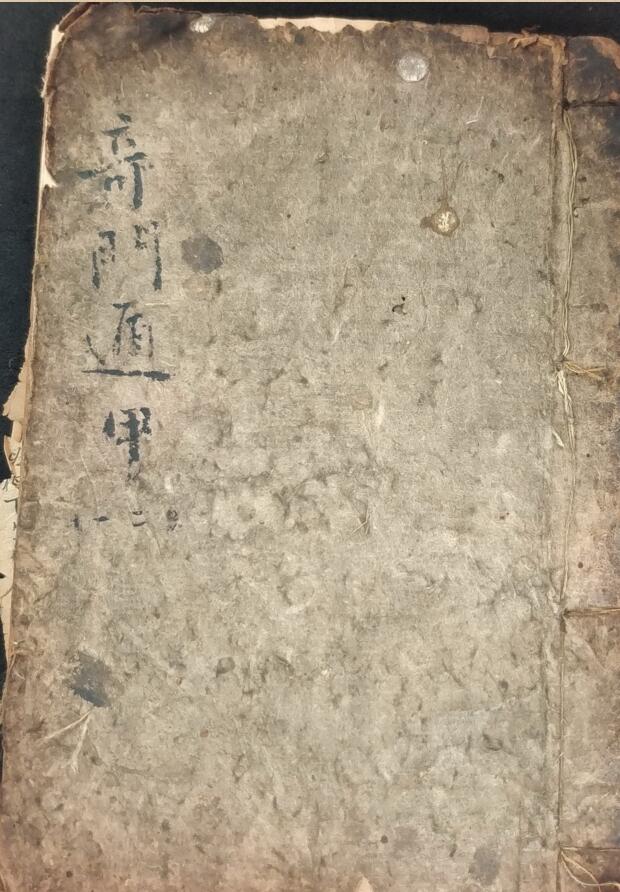 奇門遁甲